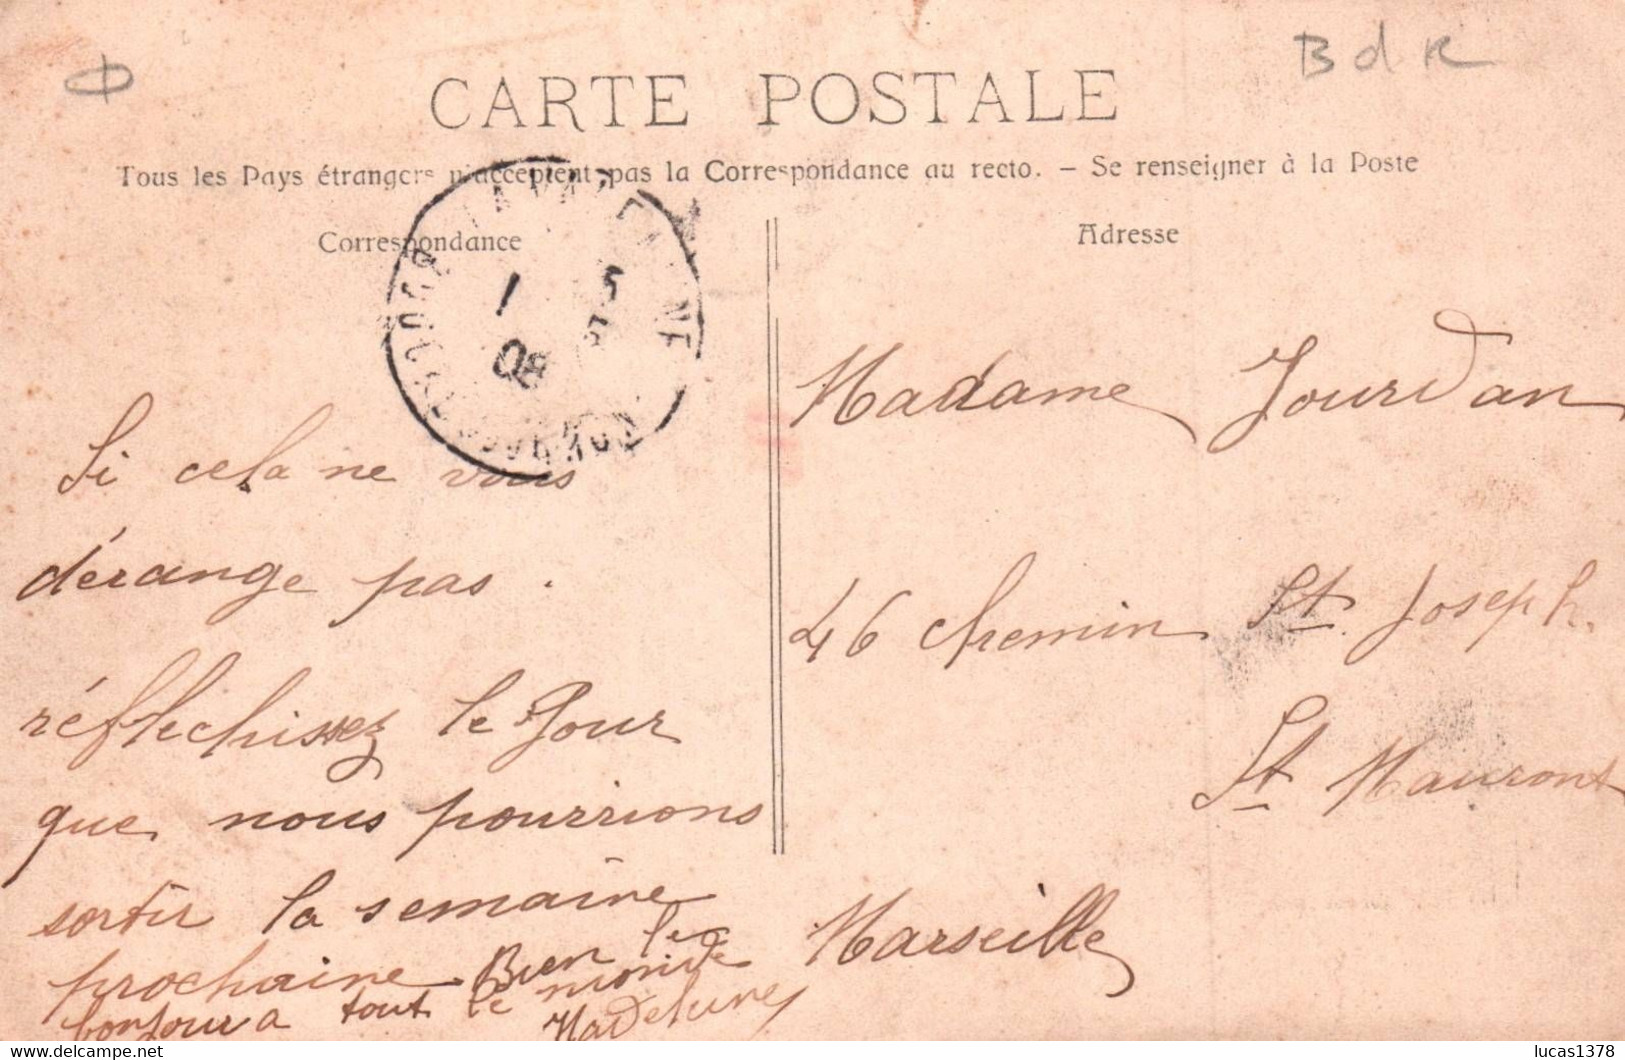 B d R
CARTE POSTALE
Tous les Pays étrangers n'acceptent pas la Correspondance au recto. – Se renseigner à la Poste
Correspondance
Si cela ne vous
dérange pas.
réflechissez le Jour
que nous pourrions
sortir la semaine
prochaine. Bien le
bonjour a tout le monde
Adresse
Madame Jourdan
46 chemin St. Joseph.
St Mauront
Marseille
1 5
08
lucas1378